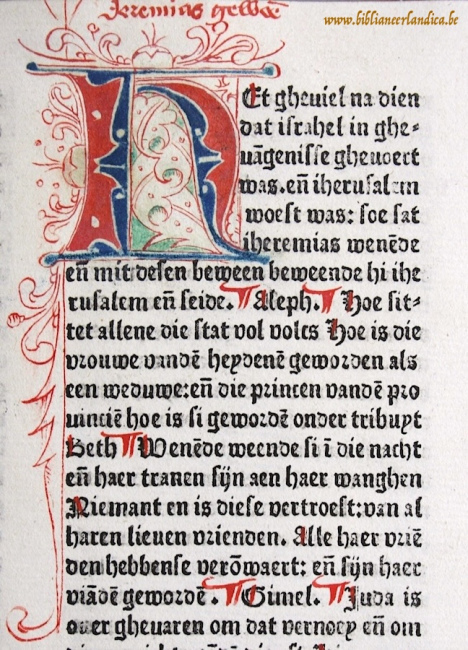 Jeremias gewēē
www.biblianeerlandica.be
HEt gheuiel na dien
dat israhel in ghe⸗
uāgenisse gheuoert
was. eñ iherusalem
woest was: soe sat
iheremias wenēde
eñ mit desen beween beweende hi ihe
rusalem eñ seide. ¶ Aleph. ¶ Hoe sit⸗
tet allene die stat vol volcs Hoe is die
vrouwe vandē heydenē geworden als
een weduwe: eñ die princen vandē pro
uinciē hoe is si gewordē onder tribuyt
Beth ¶ Wenēde weende si ī die nacht
eñ haer tranen sijn aen haer wanghen
Niemant en is diese vertroest: van al
haren lieuen vrienden. Alle haer vriē
den hebbense verōwaert: eñ sijn haer
viādē gewordē. ¶ Gimel. ¶ Juda is
ouer gheuaren om dat vernoey eñ om